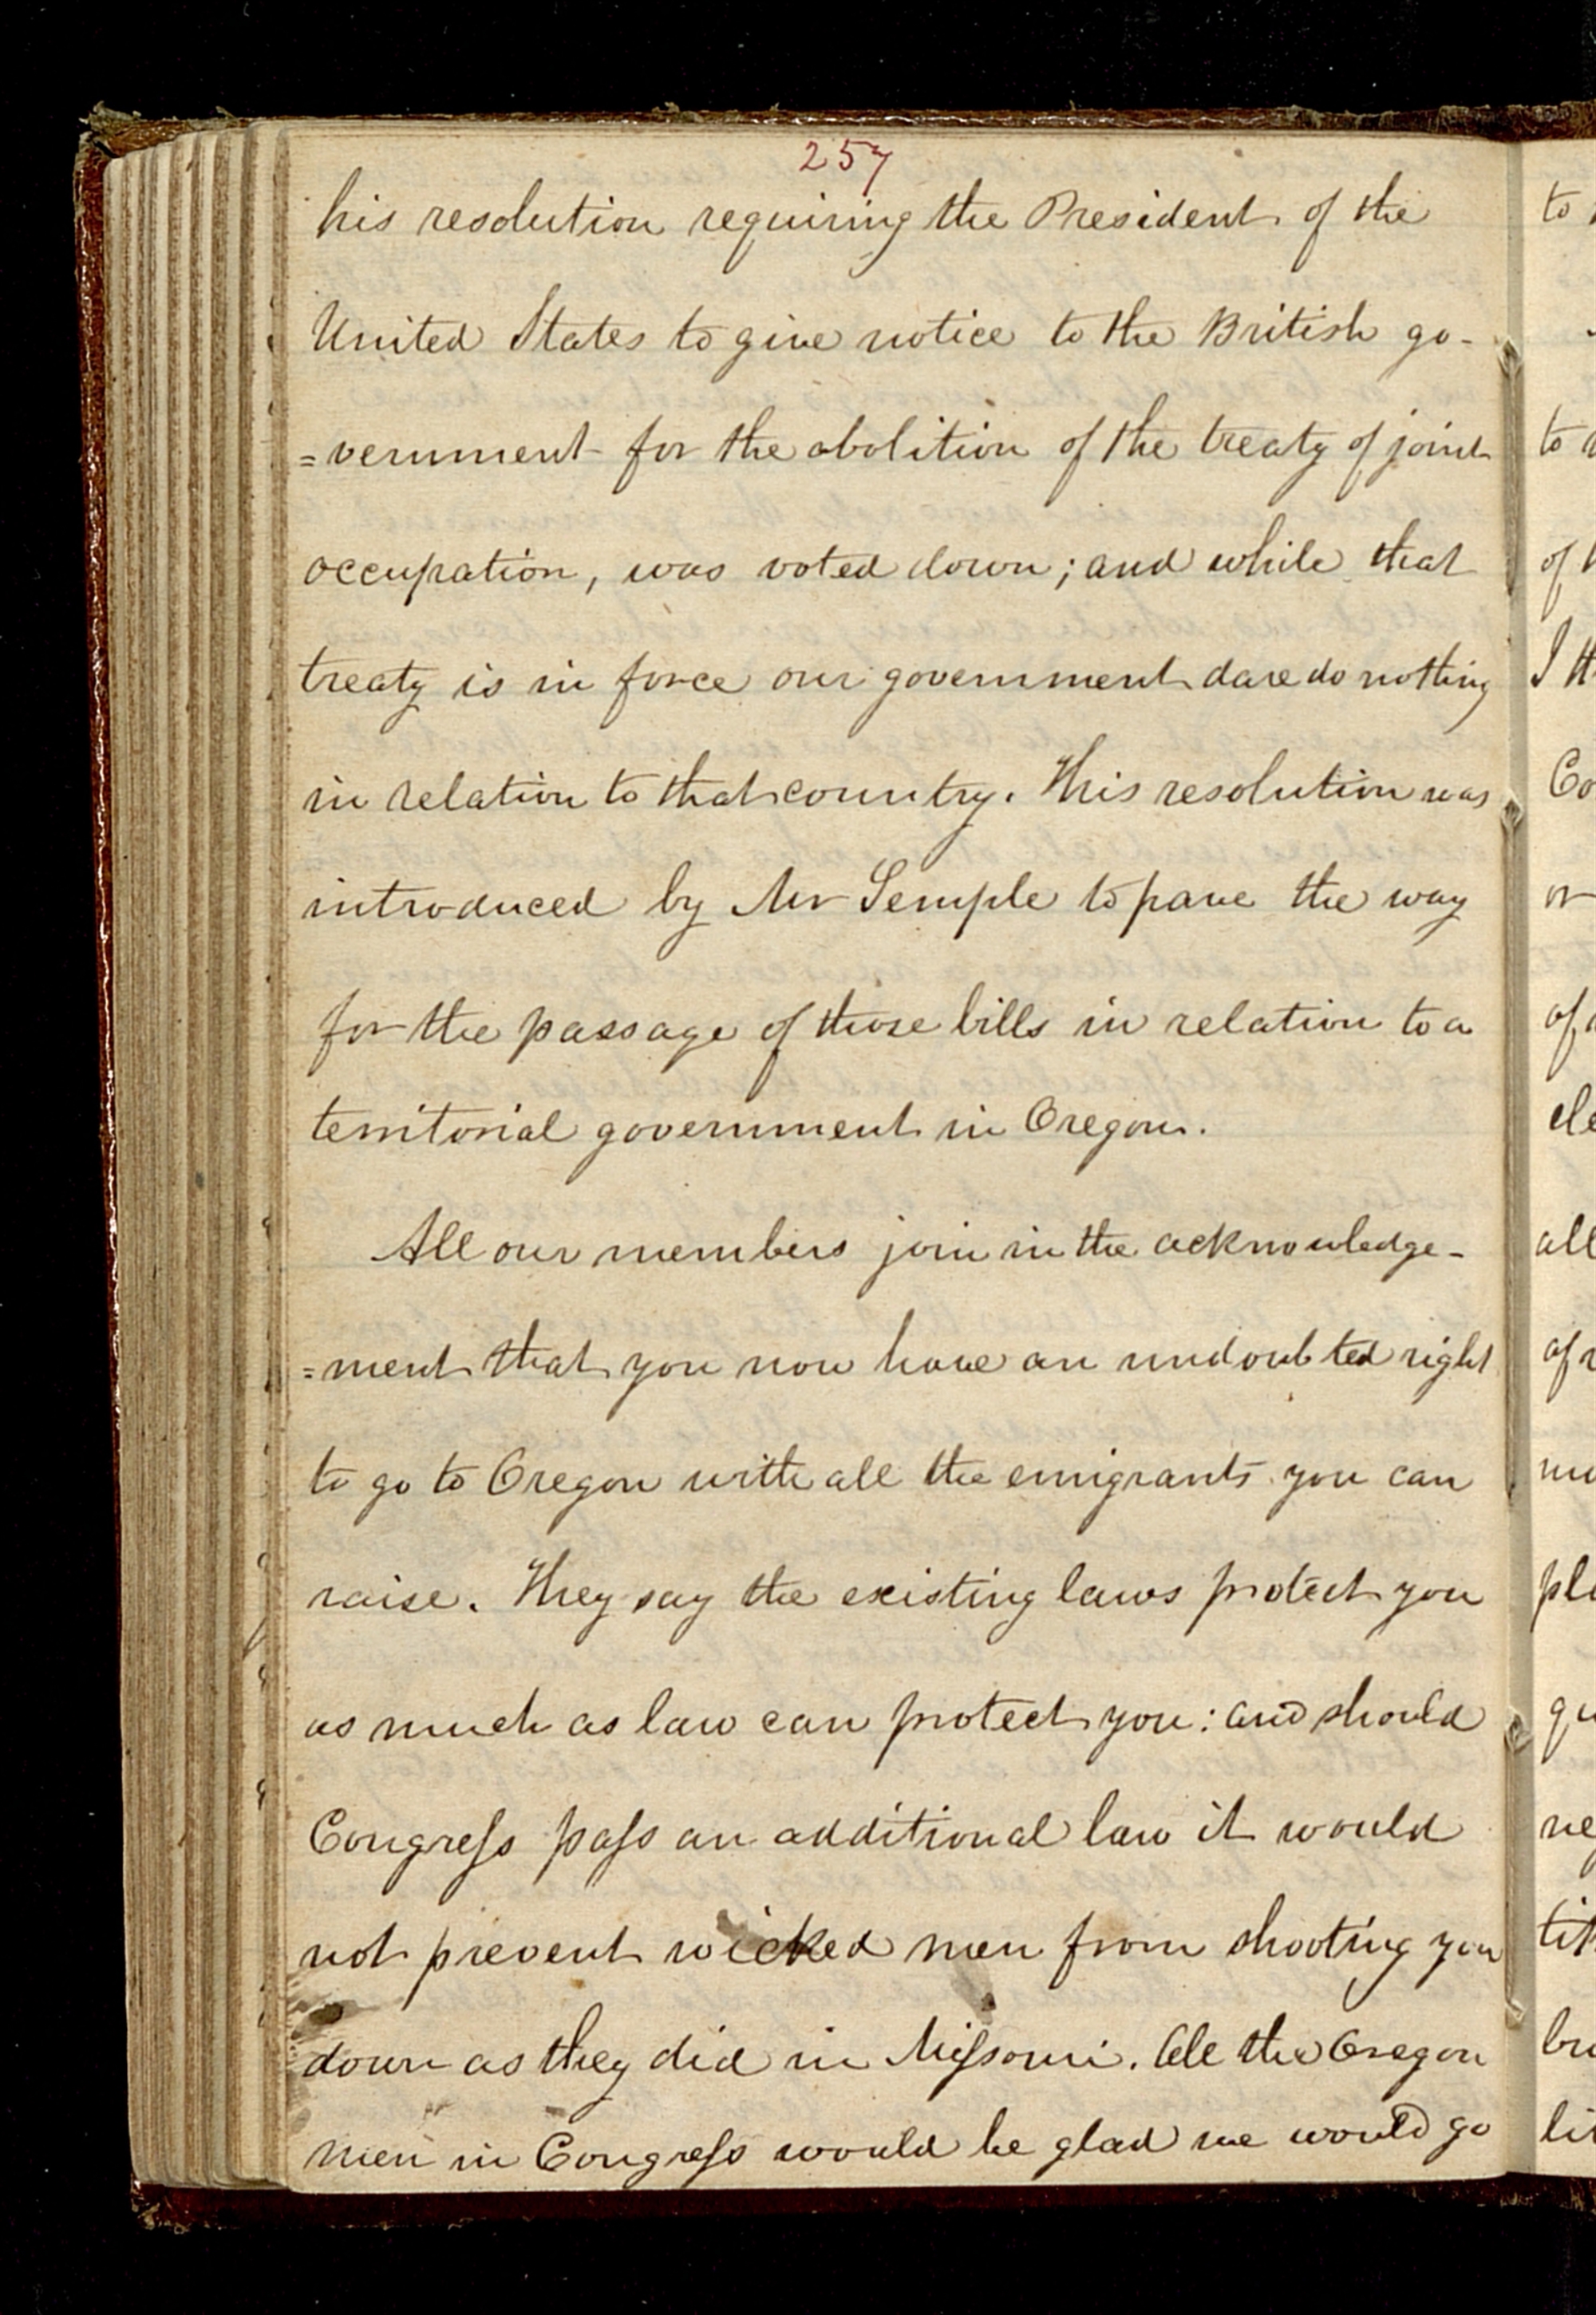 257
his resolution requiring the President of the
United States to give notice to the British go-
=vernment for the abolition of the treaty of joint
occupation, was voted down; and while that
treaty is in force our government dare do nothing
in relation to that country. This resolution was
introduced by Mr Semple to pave the way
for the passage of those bills in relation to a
territorial government in Oregon.
All our members join in the acknowledge-
=ment that you now have an undoubted right
to go to Oregon with all the emigrants you can
raise. They say the existing laws protect you
as much as law can protect you: and should
Congreſs paſs an additional law it would
not prevent wicked men from shooting you
down as they did in Miſsouri. All the Oregon
men in Congreſs would be glad we would go
to
to
of
I th
Co
or
of
ele
all
of
mu
pl
qu
ne
tit
bu
li